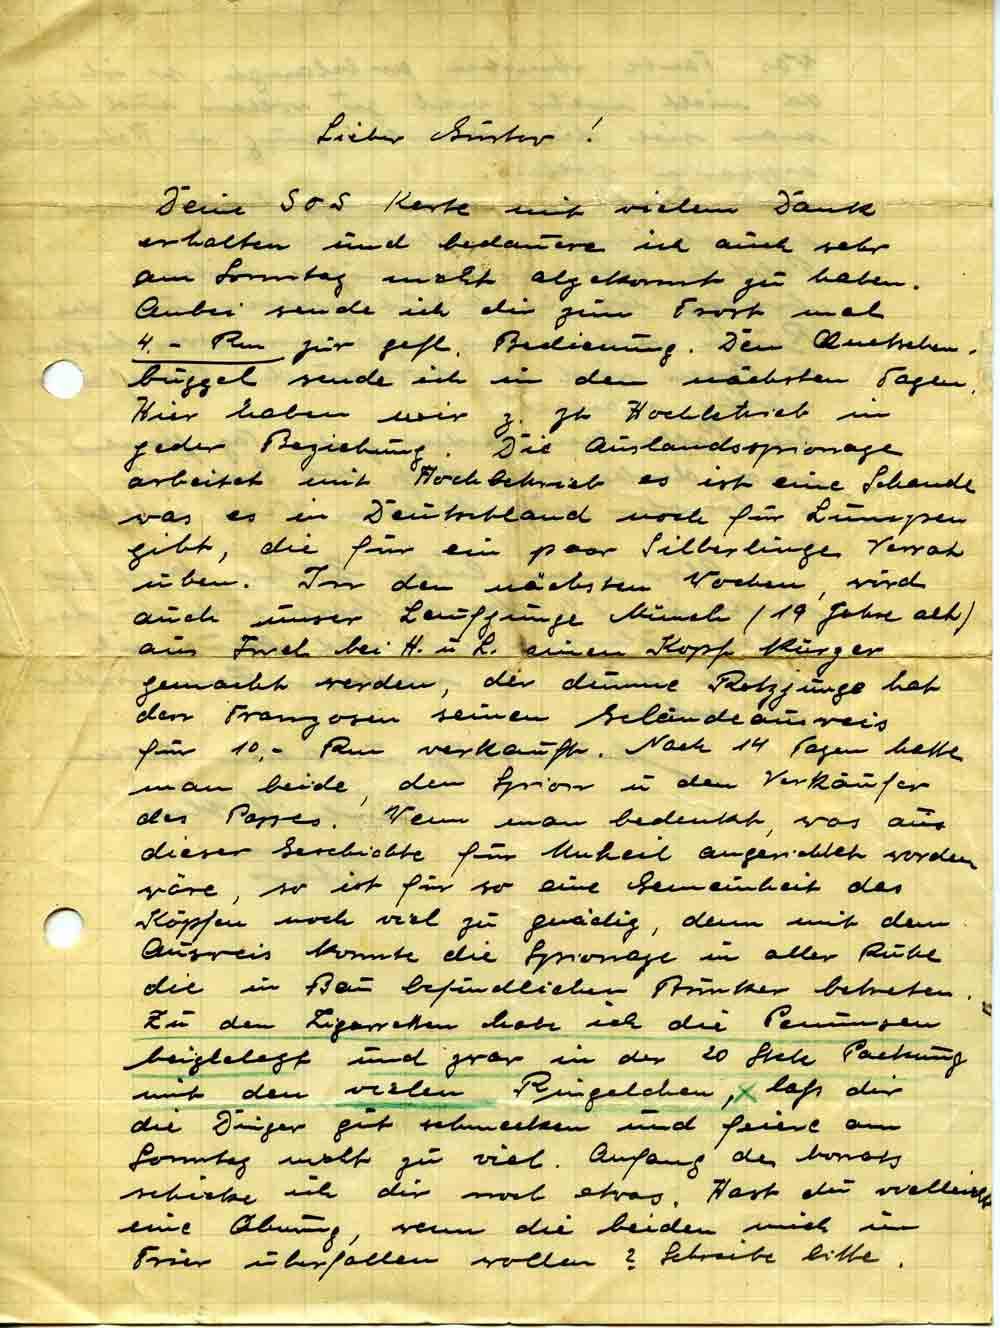 Lieber Günter!
Deine SOS Karte mit vielem Dank
erhalten und bedauere ich auch sehr
am Sonntag nicht abgekommt zu haben.
Anbei sende ich dir zum Trost mal
4.- Rm zur gefl. Bedienung. Den Quetschen-
büggel sende ich in den nächsten Tagen.
Hier haben wir z. Zt Hochbetrieb in
jeder Beziehung. Die Auslandsspionage
arbeitet mit Hochbetrieb es ist eine Schande
was es in Deutschland noch für Lumpen
gibt, die für ein paar Silberlinge Verrat
üben. Inn den nächsten Wochen, wird
auch unser Laufjunge Münch (19 Jahre alt)
aus bei H. u L. einen Kopf kürzer
gemacht werden, der dumme Rotzjunge hat
den Franzosen seinen Geländeausweis
für 10,- Rm verkauft. Nach 14 Tagen hatte
man beide, den Spion u den Verkäufer
des Passes. Wenn man bedenkt, was aus
dieser Geschichte für Unheil angerichtet worden
wäre, so ist für so eine Gemeinheit das
Köpfen noch viel zu gnädig, denn mit dem
Ausweis konnte die Spionage in aller Ruhe
die in Bau befindlichen Bunker betreten.
Zu den Zigarretten habe ich die Penunsen
beigelegt und zwar in der 20 Stck Packung
mit den vielen Ringelchen, x laß dir
die Dinger gut schmecken und feiere am
Sonntag nicht zu viel. Anfang des Monats
schicke ich dir noch etwas. Hast du vielleicht
eine Ahnung, wenn die beiden mich in
Trier überfallen wollen? Schreibe bitte.